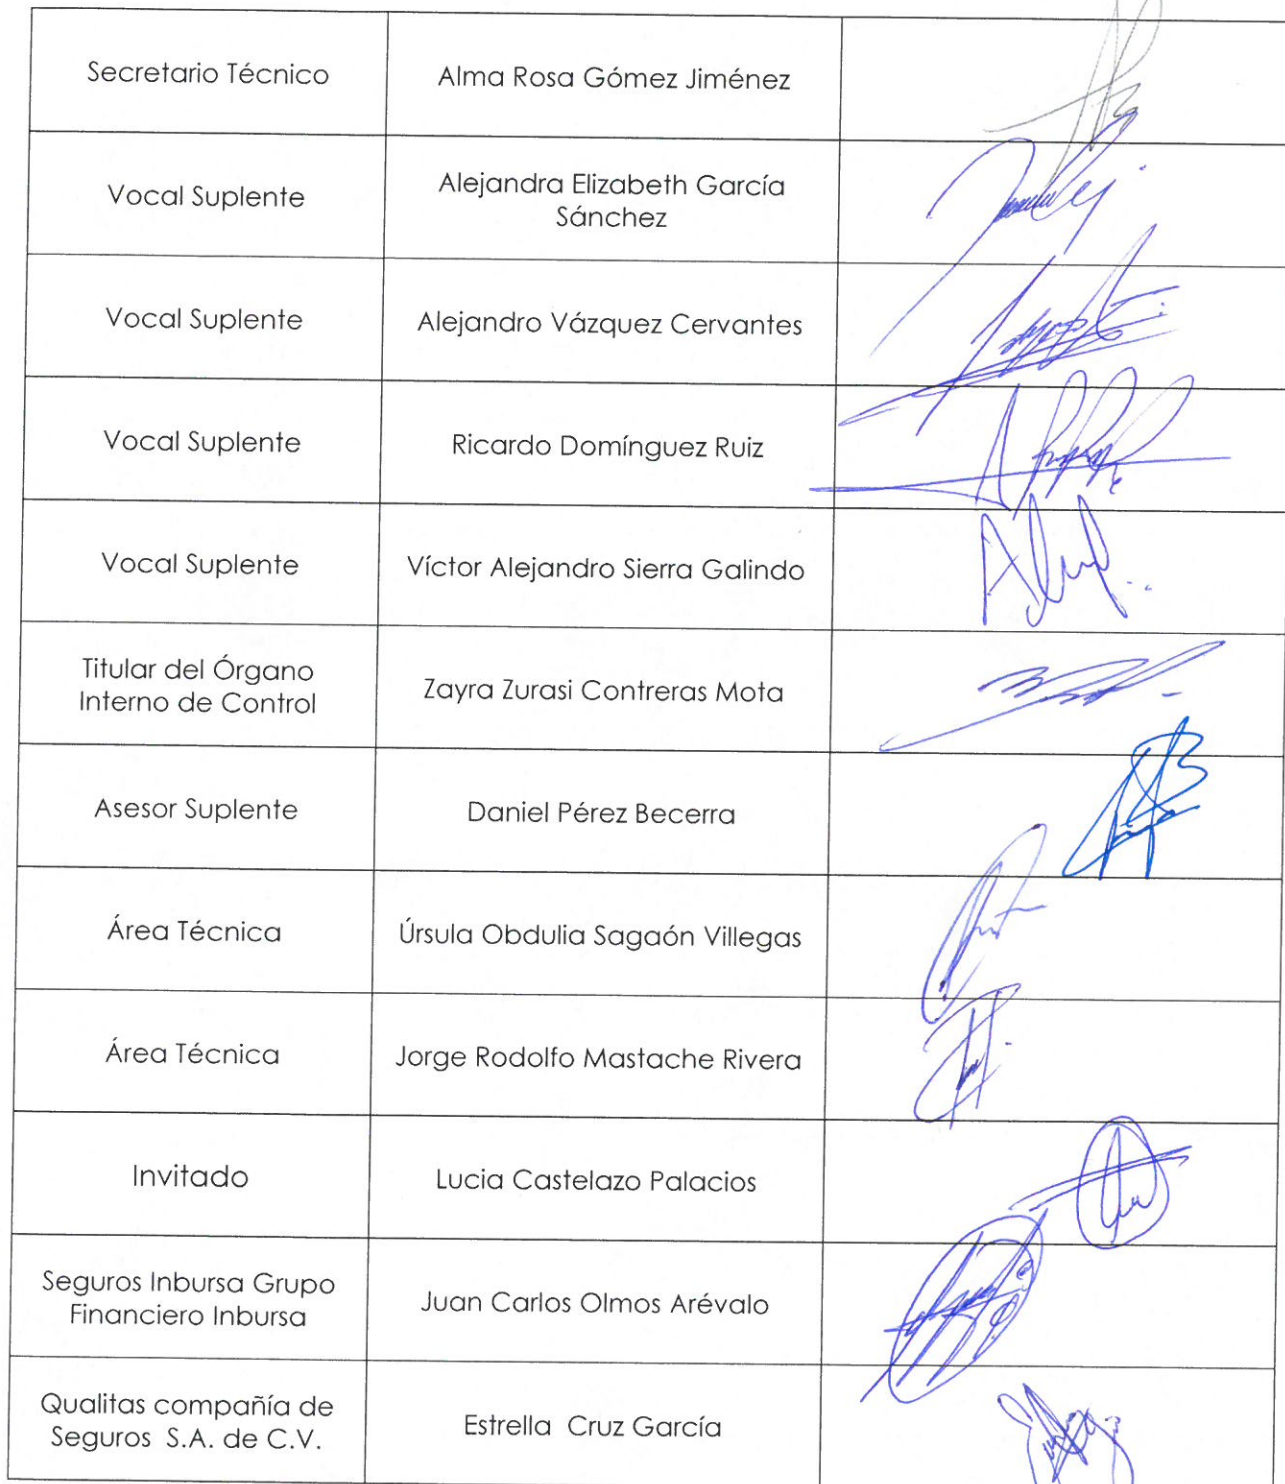 Secretario Técnico
Alma Rosa Gómez Jiménez
Vocal Suplente
Alejandra Elizabeth García
Sánchez
Vocal Suplente
Alejandro Vázquez Cervantes
Vocal Suplente
Ricardo Domínguez Ruiz
Vocal Suplente
Víctor Alejandro Sierra Galindo
Titular del Órgano
Interno de Control
Zayra Zurasi Contreras Mota
Asesor Suplente
Daniel Pérez Becerra
Área Técnica
Úrsula Obdulia Sagaón Villegas
Área Técnica
Jorge Rodolfo Mastache Rivera
Invitado
Lucia Castelazo Palacios
Seguros Inbursa Grupo
Financiero Inbursa
Juan Carlos Olmos Arévalo
Qualitas compañía de
Seguros S.A. de C.V.
Estrella Cruz García